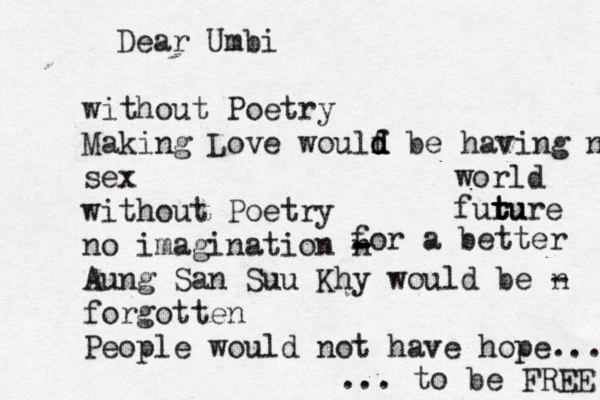 Dear Umbi
without Poetry
Making Love would be having n
sex
world
without Poetry
future
no imagination for a better
Aung San Suu Khy would be n
forgotten
People would not have hope...
... to be FREE